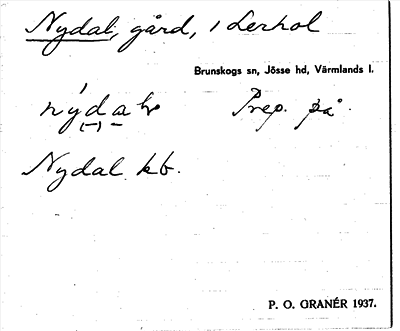 Nydal, gård, i Lerhol
Brunskogs sn, Jösse hd, Värmlands l.
Prep. på.
Nydal kb.
P. O. GRANÉR 1937.